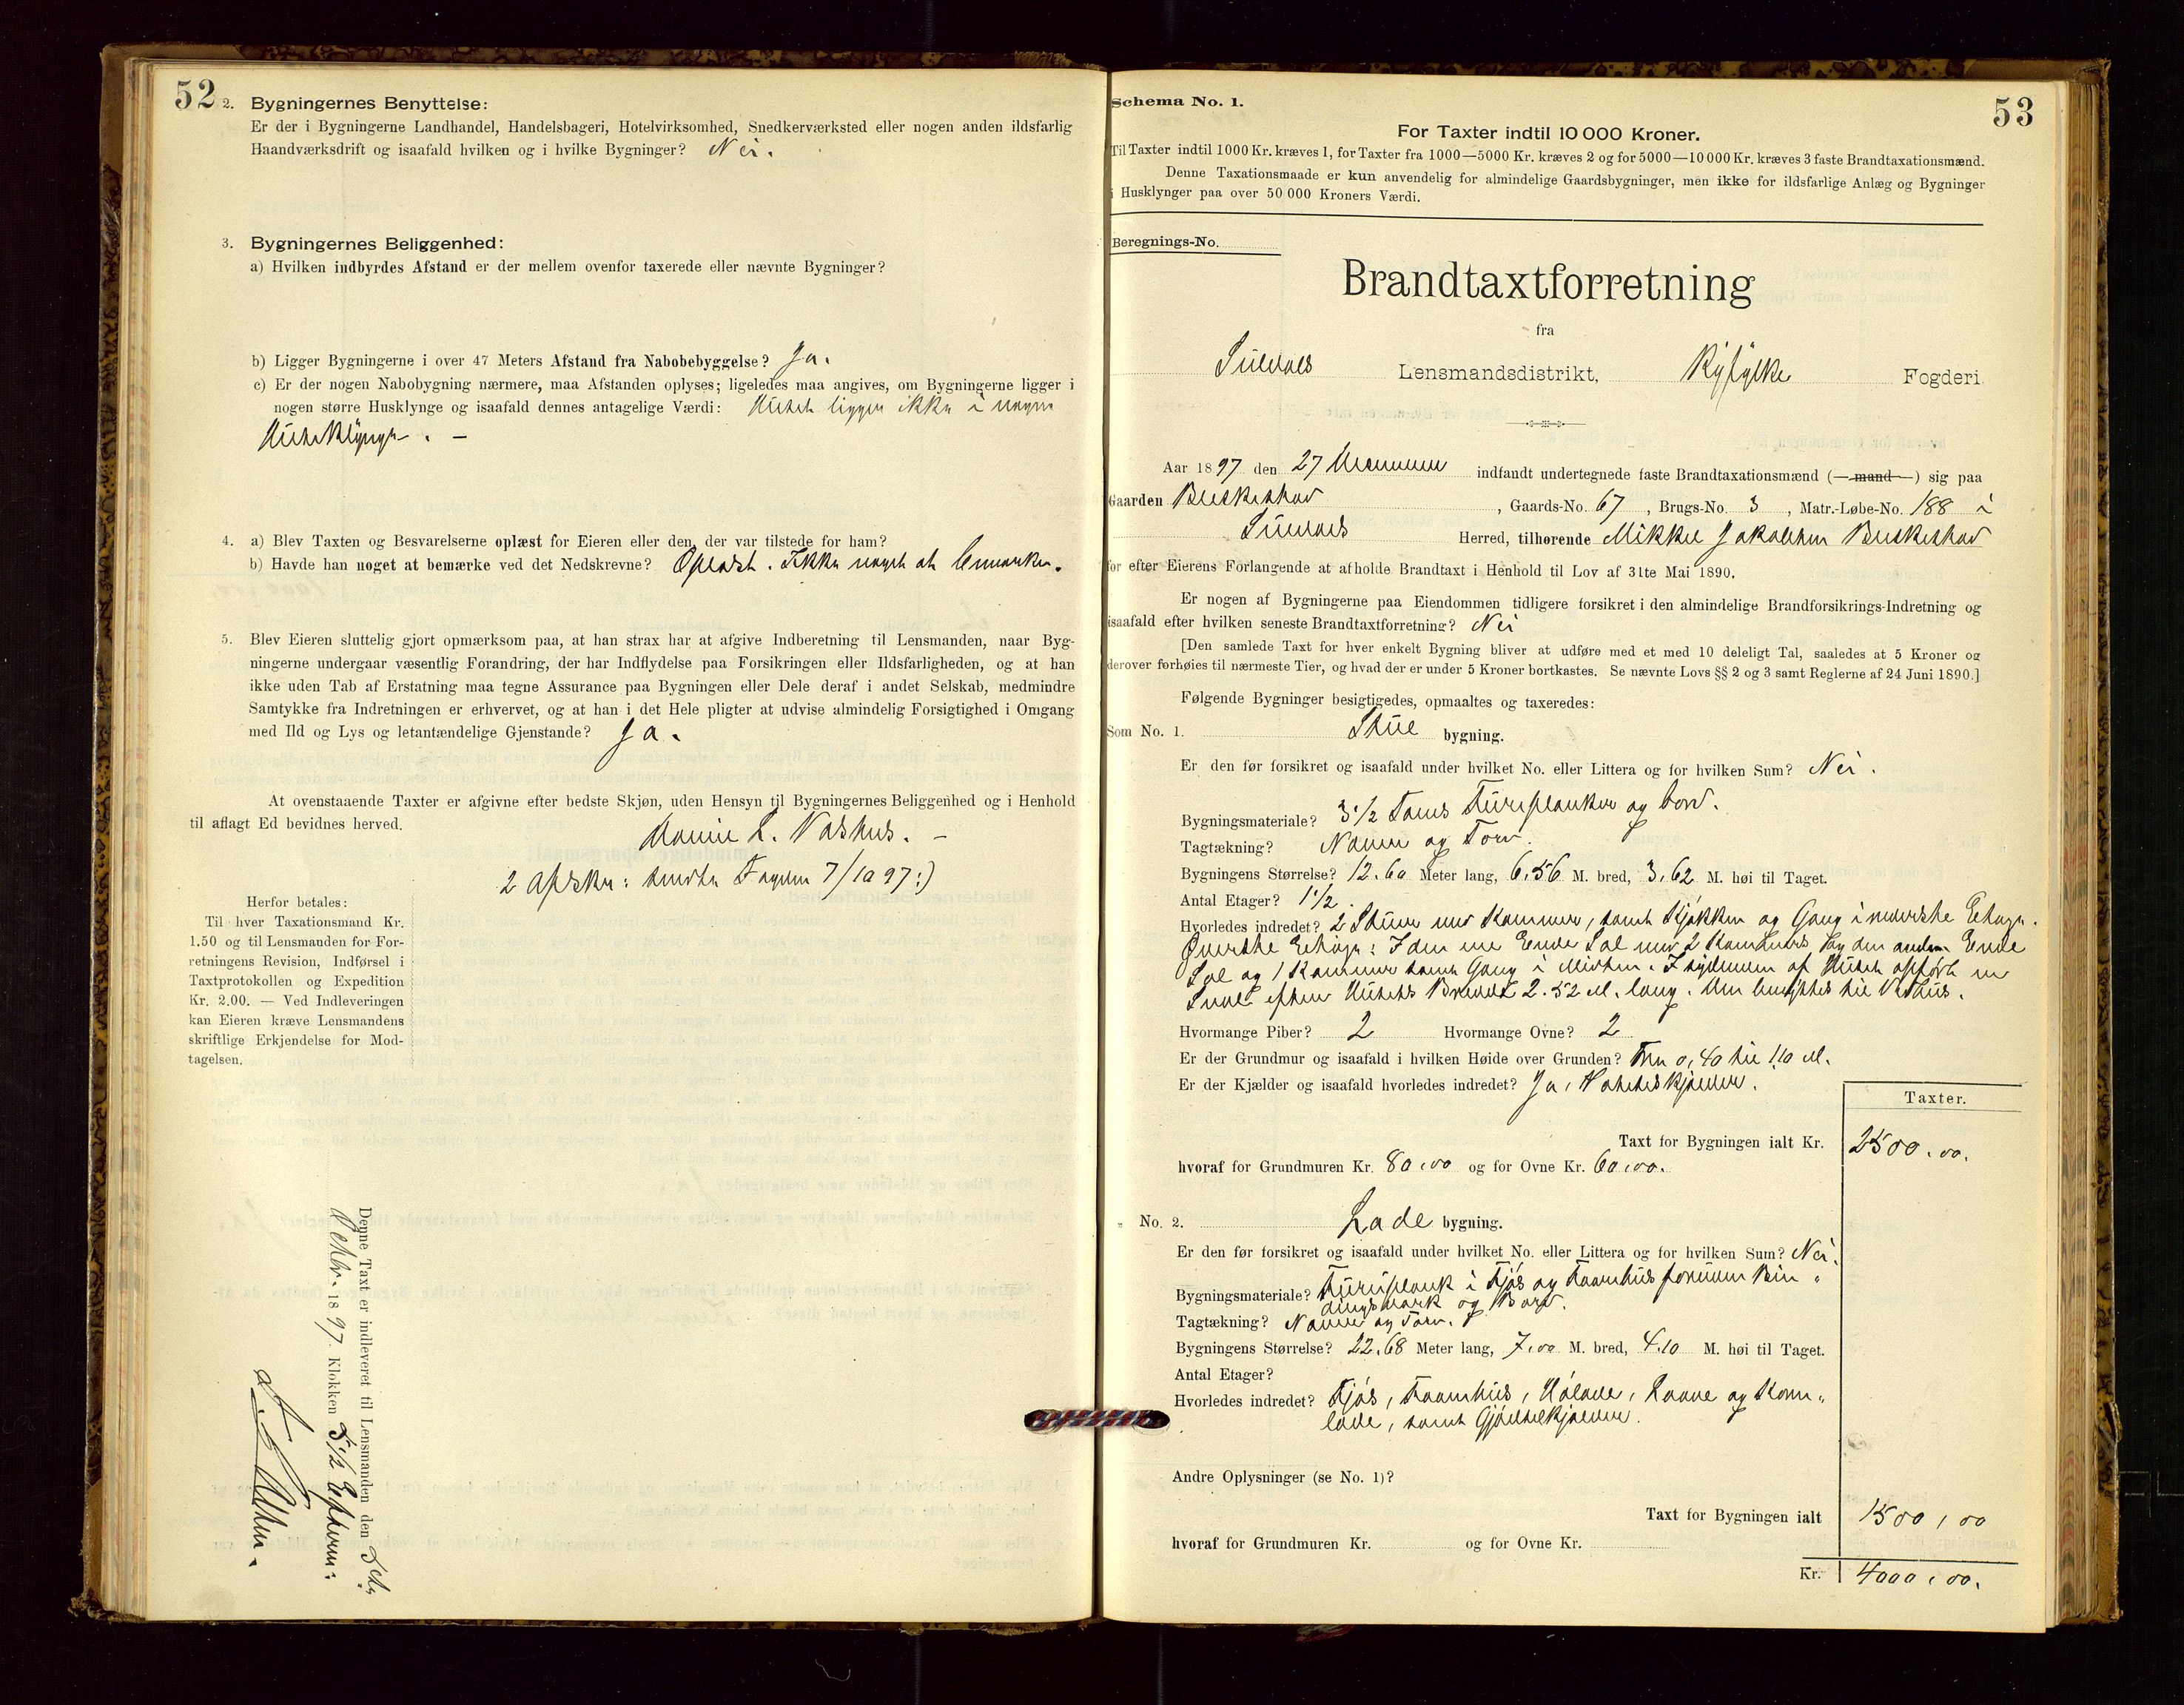 52
2. Bygningernes Benyttelse:
Er der i Bygningerne Landhandel, Handelsbageri, Hotelvirksomhed, Snedkerværksted eller nogen anden ildsfarlig
Haandværksdrift og isaafald hvilken og i hvilke Bygninger? Nei.
3. Bygningernes Beliggenhed:
a) Hvilken indbyrdes Afstand er der mellem ovenfor taxerede eller nævnte Bygninger?
b) Ligger Bygningerne i over 47 Meters Afstand fra Nabobebyggelse? Ja.
c) Er der nogen Nabobygning nærmere, maa Afstanden oplyses; ligeledes maa angives, om Bygningerne ligger i
nogen større Husklynge og isaafald dennes antagelige Værdi: Huset ligger ikke i nogen
Huseklynge. –
4. a) Blev Taxten og Besvarelserne oplæst for Eieren eller den, der var tilstede for ham?
b) Havde han noget at bemærke ved det Nedskrevne? Oplæst. Ikke noget at bemærke.
5. Blev Eieren sluttelig gjort opmærksom paa, at han strax har at afgive Indberetning til Lensmanden, naar Byg-
ningerne undergaar væsentlig Forandring, der har Indflydelse paa Forsikringen eller Ildsfarligheden, og at han
ikke uden Tab af Erstatning maa tegne Assurance paa Bygningen eller Dele deraf i andet Selskab, medmindre
Samtykke fra Indretningen er erhvervet, og at han i det Hele pligter at udvise almindelig Forsigtighed i Omgang
med Ild og Lys og letantændelige Gjenstande? Ja.
At ovenstaaende Taxter er afgivne efter bedste Skjøn, uden Hensyn til Bygningernes Beliggenhed og i Henhold
til aflagt Ed bevidnes herved.
L. Vashus. –
2 Afskr: sendte Fogden 7/10 97:)
Herfor betales:
Til hver Taxationsmand Kr.
1.50 og til Lensmanden for For-
retningens Revision, Indførsel i
Taxtprotokollen og Expedition
Kr. 2.00. — Ved Indleveringen
kan Eieren kræve Lensmandens
skriftlige Erkjendelse for Mod-
tagelsen.
Denne Taxt er indleveret til Lensmanden den 5te
Oktbr. 1897. Klokken 5 1/2 Efterm:
53
Schema No. 1.
For Taxter indtil 10 000 Kroner.
Til Taxter indtil 1000 Kr. kræves 1, for Taxter fra 1000—5000 Kr. kræves 2 og for 5000—10 000 Kr. kræves 3 faste Brandtaxationsmænd.
Denne Taxationsmaade er kun anvendelig for almindelige Gaardsbygninger, men ikke for ildsfarlige Anlæg og Bygninger
i Husklynger paa over 50 000 Kroners Værdi.
Beregnings-No.
Brandtaxtforretning
fra
Suldals Lensmandsdistrikt, Ryfylke Fogderi.
Aar 1897 den 27 indfandt undertegnede faste Brandtaxationsmænd (— mand —) sig paa
Gaarden Bleskestad, Gaards-No. 67, Brugs-No. 3, Matr.-Løbe-No. 188 i
Suldals Herred, tilhørende Mikkel Jakobsen Bleskestad
for efter Eierens Forlangende at afholde Brandtaxt i Henhold til Lov af 31te Mai 1890.
Er nogen af Bygningerne paa Eiendommen tidligere forsikret i den almindelige Brandforsikrings-Indretning og
isaafald efter hvilken seneste Brandtaxtforretning? Nei
[Den samlede Taxt for hver enkelt Bygning bliver at udføre med et med 10 deleligt Tal, saaledes at 5 Kroner og
derover forhøies til nærmeste Tier, og hvad der er under 5 Kroner bortkastes. Se nævnte Lovs §§ 2 og 3 samt Reglerne af 24 Juni 1890.]
Følgende Bygninger besigtigedes, opmaaltes og taxeredes:
Som No. 1. Stue bygning.
Er den før forsikret og isaafald under hvilket No. eller Littera og for hvilken Sum? Nei.
Bygningsmateriale? 3 1/2 Toms Furuplanker og bord.
Tagtækning? Næver og Torv.
Bygningens Størrelse? 12.60 Meter lang, 6,56 M. bred, 3,62 M. høi til Taget.
Antal Etager? 1 1/2.
Hvorledes indredet? 2 Stuer med Kammer, samt Kjøkken og Gang i nederste Etage.
Øverste Etage: I den ene Ende Sal med 2 Kammers og den anden Ende
Sal og 1 Kammer samt Gang i Midten. I af Huset opført en
Sval efter Husets Bredde 2.52 M. lang. benyttes til Vedhus.
Hvormange Piber? 2 Hvormange Ovne? 2
Er der Grundmur og isaafald i hvilken Høide over Grunden? Fra 0,40 til 1.10 M.
Er der Kjælder og isaafald hvorledes indredet? Ja, Poteteskjælder.
Taxter.
Taxt for Bygningen ialt Kr. 2500.00.
hvoraf for Grundmuren Kr. 80,00 og for Ovne Kr. 60,00.
" No. 2. Lade bygning.
Er den før forsikret og isaafald under hvilket No. eller Littera og for hvilken Sum? Nei.
Bygningsmateriale? Furuplank i Fjøs og Faarehus forøvrigt Bin-
dingsværk og Bord.
Tagtækning? Næver og Torv.
Bygningens Størrelse? 22,68 Meter lang, 7,00 M. bred, 4,10 M. høi til Taget.
Antal Etager?
Hvorledes indredet? Fjøs, Faarehus, Hølade, Laave og Korn-
lade, samt Gjødselkjælder.
Andre Oplysninger (se No. 1)?
Taxt for Bygningen ialt 1500,00
hvoraf for Grundmuren Kr. og for Ovne Kr.
Kr. 4000,00.